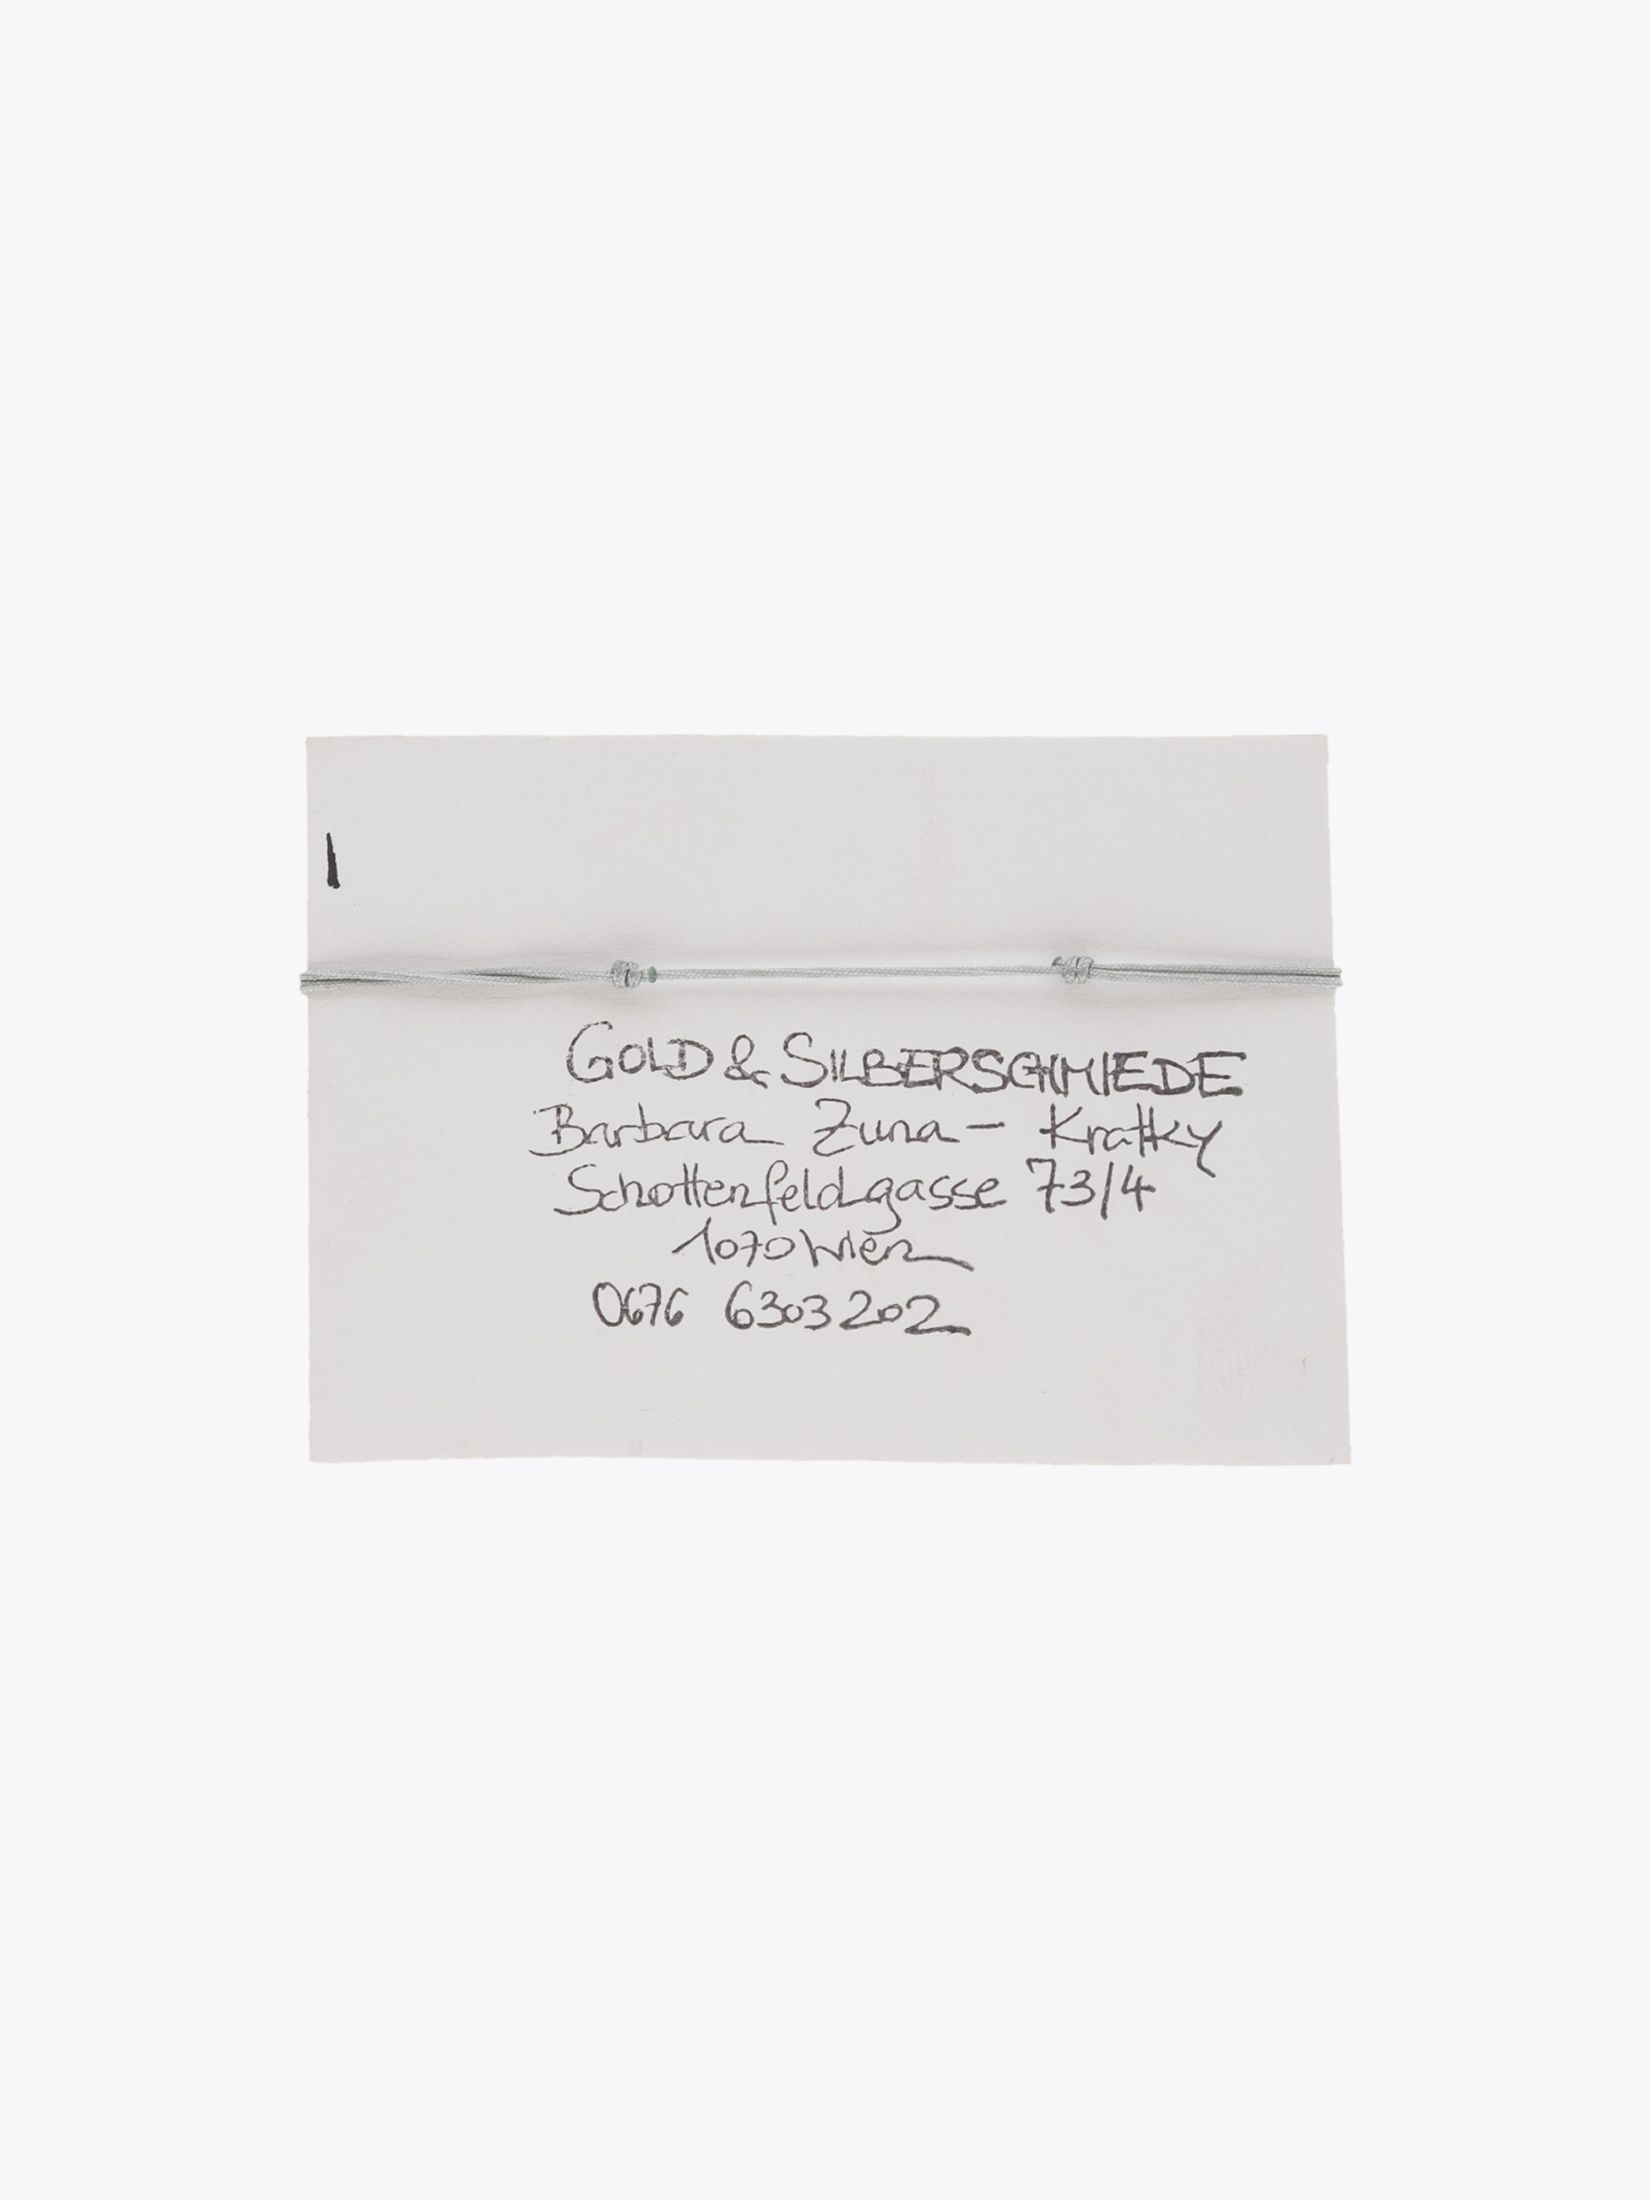 GOLD & SILBERSCHMIEDE
Barbara Zuna - Kratky
Schottenfeldgasse 73/4
1070 Wien
0676 6303202